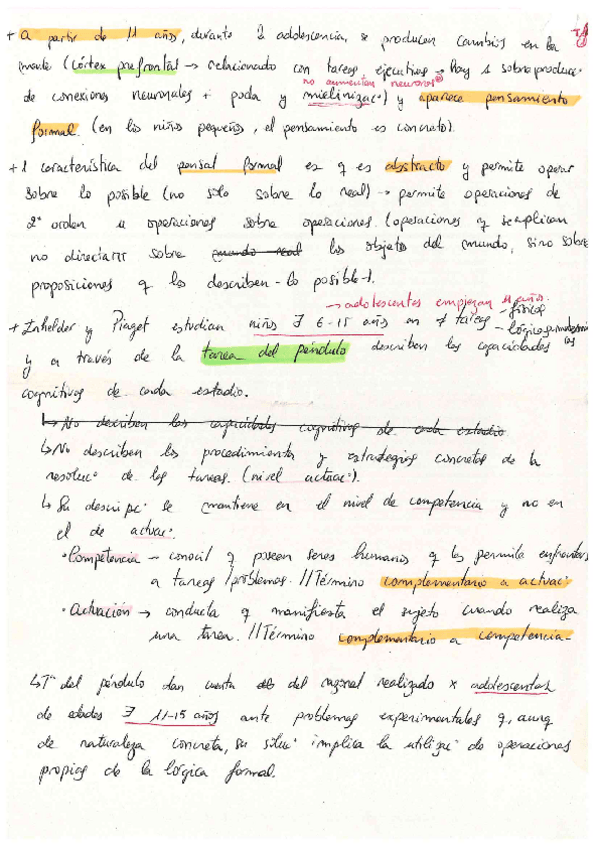 + A partir de 11 años, durante l adolescencia, se producen cambios en la
mente (córtex prefrontal → relacionado con tareas ejecutivas → hay 1 sobreproducc⁻
no aumentan neuronas
de conexiones neuronales + poda y mielinizac⁻) y aparece pensamiento
formal. (en los niños pequeños, el pensamiento es concreto).
+ 1 característica del pensat formal es q es abstracto y permite operar
sobre lo posible (no sólo sobre lo real) → permite operaciones de
2º orden u operaciones sobre operaciones. (operaciones q se aplican
no directam sobre mundo real los objetos del mundo, sino sobre
proposiciones q los describen - lo posible -).
→ adolescentes empiezan 11 años.
+ Inhelder y Piaget estudian niños 6-15 años en ≠ tareas - físicas
- lógico-matemáticas
y a través de la tarea del péndulo describen las capacidades
cognitivas de cada estadio.
↳ No describen las capacidades cognitivas de cada estadio
↳ No describen los procedimientos y estrategias concretas de la
resoluc⁻ de las tareas. (nivel actuac⁻).
↳ Su descripc⁻ se mantiene en el nivel de competencia y no en
el de actuac⁻.
• Competencia → q poseen seres humanos q les permite enfrentarse
a tareas/problemas. // Término complementario a actuac⁻
• Actuación → conducta q manifiesta el sujeto cuando realiza
una tarea. // Término complementario a competencia -
↳ Tª del péndulo dan cuenta del realizado x adolescentes
de edades 11-15 años ante problemas experimentales q, aunq
de naturaleza concreta, su soluc⁻ implica la utilizac⁻ de operaciones
propias de la lógica formal.